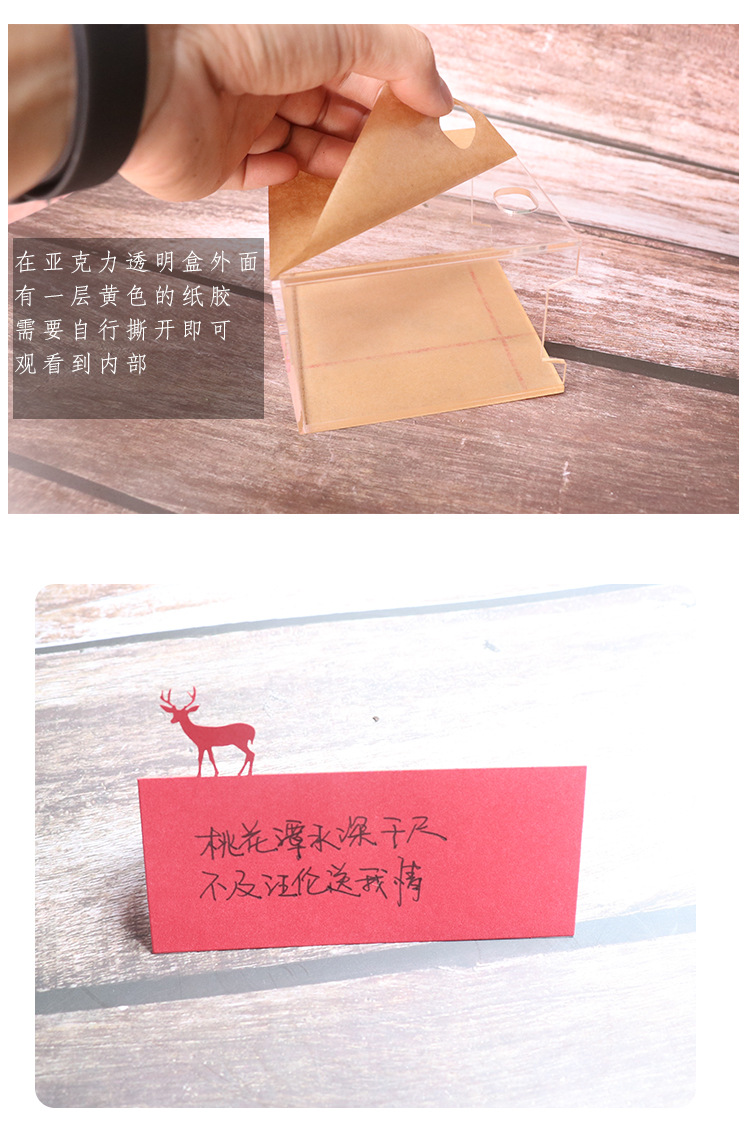 在亚克力透明盒外面
有一层黄色的纸胶
需要自行撕开即可
观看到内部
桃花潭水深千尺
不及汪伦送我情